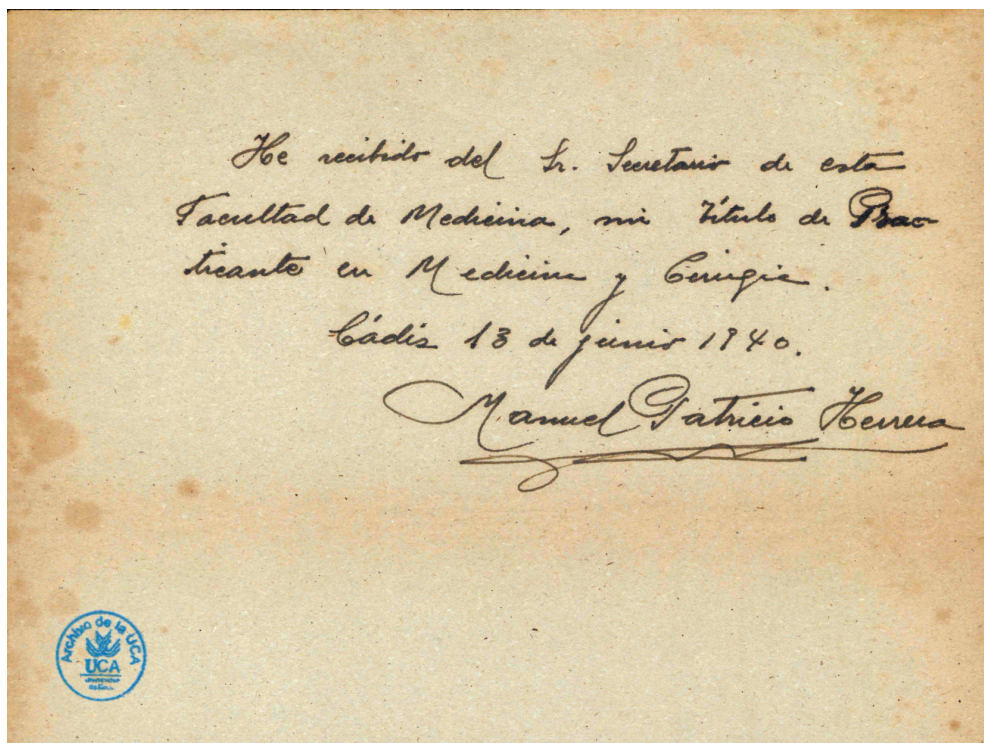 He recibido del Sr. Secretario de esta
Facultad de Medicina, mi título de Prac-
ticante en Medicina y Cirugía.
Cádiz 13 de junio 1940.
Manuel Patricio Herrera
Archivo de la UCA
UCA